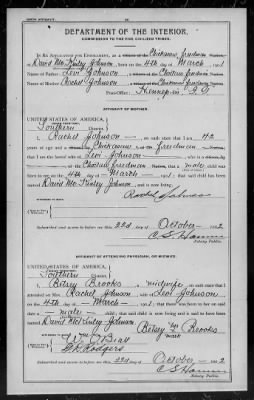 BIRTH AFFIDAVIT.
DEPARTMENT OF THE INTERIOR.
COMMISSION TO THE FIVE CIVILIZED TRIBES.
IN RE APPLICATION FOR ENROLLMENT, as a citizen of the Chickasaw freedman
David McKinley Johnson, born on the 4th day of March, 1901
Name of Father: Levi Johnson a citizen of the Choctaw freedman Nation.
Name of Mother: Rachel Johnson a citizen of the Chickasaw freedman
Post-Office: Hennepin I T
AFFIDAVIT OF MOTHER.
UNITED STATES OF AMERICA,
Southern District.
I, Rachel Johnson, on oath state that I am 42
years of age and a Chickasaw freedman
of Levi Johnson
of the Choctaw freedman Nation; that a male child was
born to me on 4th day of March, 1901; that said child has been named
David McKinley Johnson, and is now living.
Rachel Johnson
Subscribed and sworn to before me this 22d day of October 1902
C S Hamm
Notary Public.
AFFIDAVIT OF ATTENDING PHYSICIAN, OR MIDWIFE.
UNITED STATES OF AMERICA,
Southern District.
I, Betsy Brooks, a midwife, on oath state that I
attended on Mrs. Rachel Johnson, wife of Levi Johnson
on the 4th day of March, 1901; that there was born to her on said
date a male child; that said child is now living and is said to have been
named David McKinley Johnson
Betsy Brooks
mark
Rodgers
Subscribed and sworn to before me this 22d day of October 1902
C S Hamm
Notary Public.